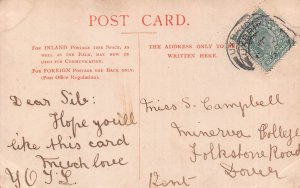 POST CARD.
FOR INLAND POSTAGE THIS SPACE, AS
WELL AS THE BACK, MAY NOW BE
USED FOR COMMUNICATION.
FOR FOREIGN POSTAGE THE BACK ONLY.
(Post Office Regulation).
THE ADDRESS ONLY TO BE
WRITTEN HERE.
Dear Sib:
Hope you'll
like this card
much love
Miss S. Campbell
Minerva College
Folkstone Road
Dover
Kent